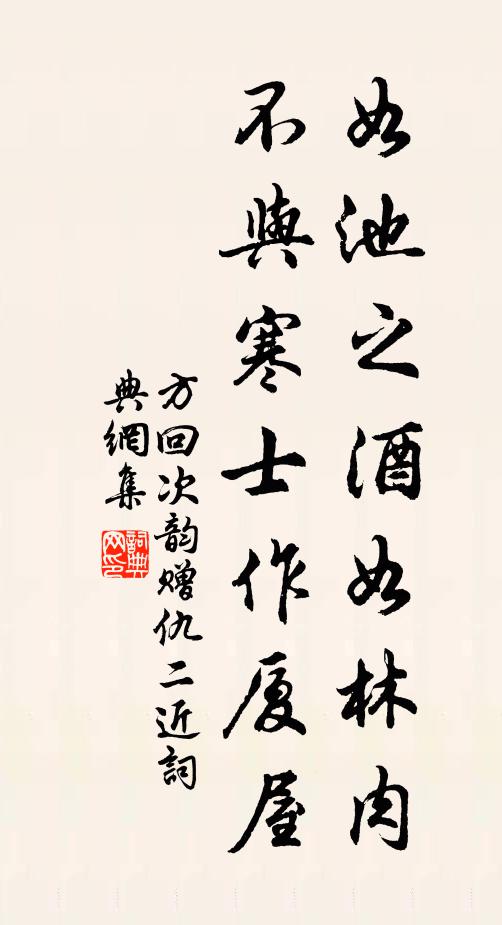 如池之酒如林肉
不與寒士作厦屋
方回次韵赠仇二近詞
典網集
詞典
网印